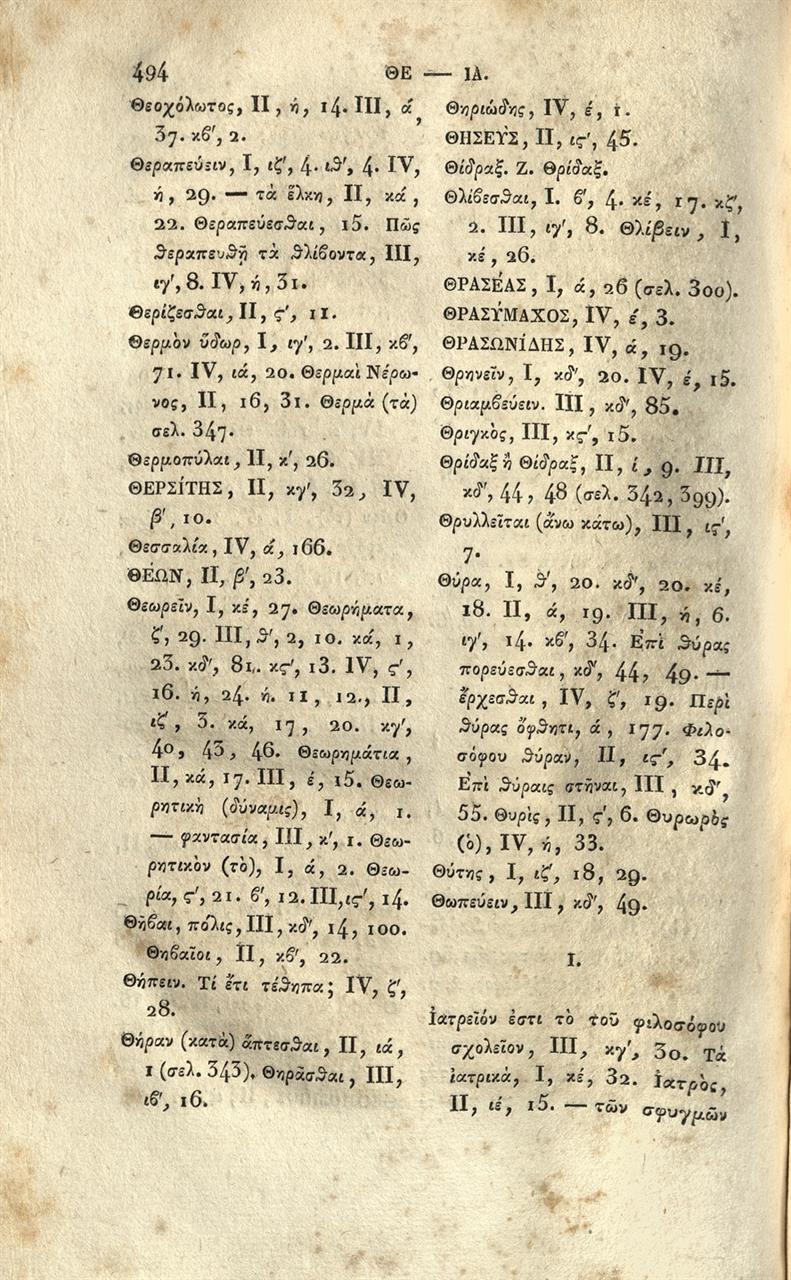 494
ΘΕ — ΙΑ.
Θεοχόλωτος, II, ή, 14. III, ά,
37. κβ', 2.
Θεραπεύειν, I, ιζ', 4. ιθ', 4. IV,
ή, 29. — τὰ ἕλκη, II, κά,
22. Θεραπεύεσθαι, 15. Πῶς
θεραπευθῇ τὰ θλίβοντα, III,
ιγ', 8. IV, ή, 31.
Θερίζεσθαι, II, ς', 11.
Θερμὸν ὕδωρ, I, ιγ', 2. III, κβ',
71. IV, ιά, 20. Θερμαὶ Νέρω-
νος, II, 16, 31. Θερμὰ (τὰ)
σελ. 347.
Θερμοπύλαι, II, κ', 26.
ΘΕΡΣΙΤΗΣ, II, κγ', 32, IV,
β', 10.
Θεσσαλία, IV, ά, 166.
ΘΕΩΝ, II, β', 23.
Θεωρεῖν, I, κέ, 27. Θεωρήματα,
ζ', 29. III, θ', 2, 10. κά, 1,
23. κδ', 81. κς', 13. IV, ς',
16. ή, 24. ή. 11, 12., II,
ιζ', 3. κά, 17, 20. κγ',
40, 43, 46. Θεωρημάτια,
II, κά, 17. III, έ, 15. Θεω-
ρητικὴ (δύναμις), I, ά, 1.
— φαντασία, III, κ', 1. Θεω-
ρητικὸν (τὸ), I, ά, 2. Θεω-
ρία, ς', 21. β', 12. III, ις', 14.
Θῆβαι, πόλις, III, κδ', 14, 100.
Θηβαῖοι, II, κβ', 22.
Θήπειν. Τί ἔτι τέθηπα; IV, ζ',
28.
Θήραν (κατὰ) ἅπτεσθαι, II, ιά,
1 (σελ. 343). Θηρᾶσθαι, III,
ιβ', 16.
Θηριώδης, IV, έ, 1.
ΘΗΣΕΥΣ, II, ις', 45.
Θίδραξ. Ζ. Θρίδαξ.
Θλίβεσθαι, I. β', 4. κέ, 17. κζ',
2. III, ιγ', 8. Θλίβειν, I,
κέ, 26.
ΘΡΑΣΕΑΣ, I, ά, 26 (σελ. 300).
ΘΡΑΣΥΜΑΧΟΣ, IV, έ, 3.
ΘΡΑΣΩΝΙΔΗΣ, IV, ά, 19.
Θρηνεῖν, I, κδ', 20. IV, έ, 15.
Θριαμβεύειν. III, κδ', 85.
Θριγκὸς, III, κς', 15.
Θρίδαξ ἢ Θίδραξ, II, ί, 9. III,
κδ', 44, 48 (σελ. 342, 399).
Θρυλλεῖται (ἄνω κάτω), III, ις',
7.
Θύρα, I, θ', 20. κδ', 20. κέ,
18. II, ά, 19. III, ή, 6.
ιγ', 14. κβ', 34. Ἐπὶ θύρας
πορεύεσθαι, κδ', 44, 49. —
ἔρχεσθαι, IV, ζ', 19. Περὶ
θύρας ὄφθητι, ά, 177. Φιλο-
σόφου θύραν, II, ις', 34.
Ἐπὶ θύραις στῆναι, III, κδ',
55. Θυρὶς, II, ς', 6. Θυρωρὸς
(ὁ), IV, ή, 33.
Θύτης, I, ιζ', 18, 29.
Θωπεύειν, III, κδ', 49.
Ι.
Ἰατρεῖόν ἐστι τὸ τοῦ φιλοσόφου
σχολεῖον, III, κγ', 30. Τὰ
ἰατρικὰ, I, κέ, 32. Ἰατρὸς,
II, ιέ, 15. — τῶν σφυγμῶν